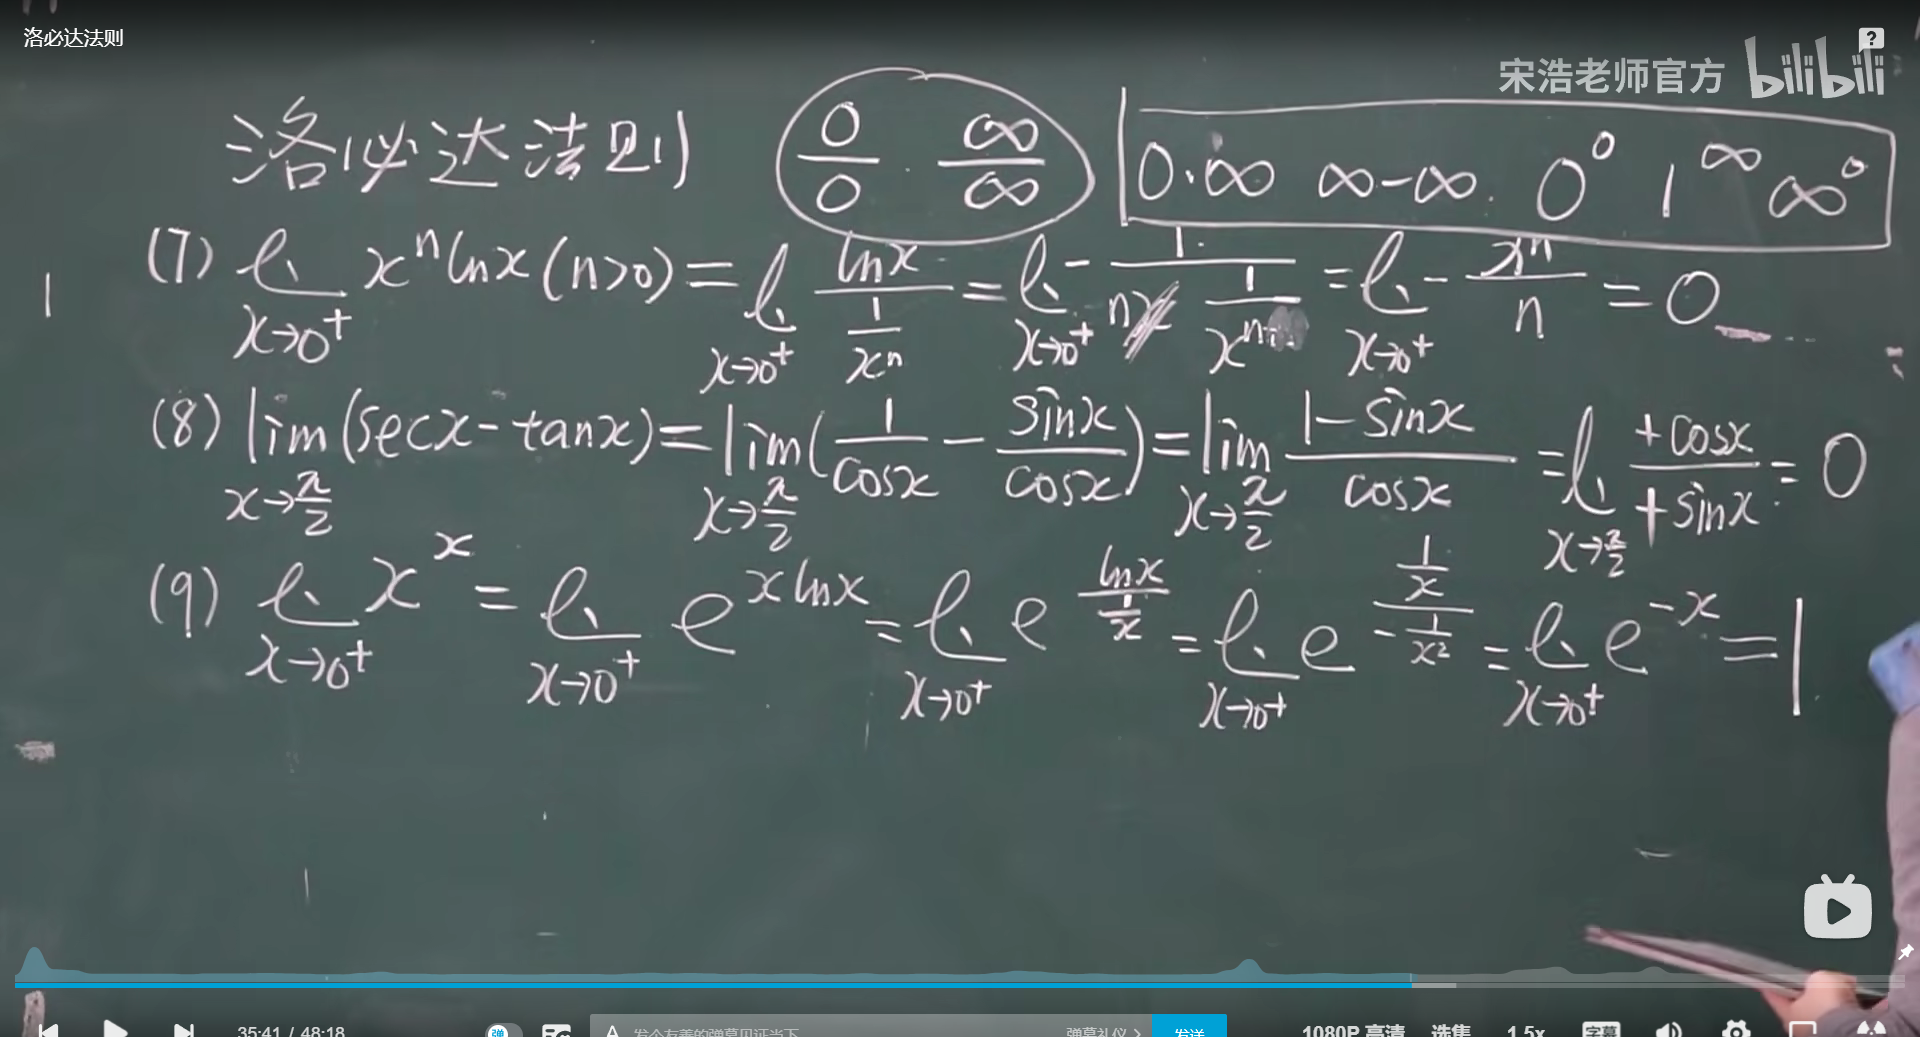 洛必达法则
宋浩老师官方 bilibili
洛必达法则 0/0 ∞/∞ 0·∞ ∞-∞ 0^0 1^∞ ∞^0
(7) lim_{x→0^+} x^n lnx (n>0) = lim_{x→0^+} lnx/(1/x^n) = lim_{x→0^+} - 1/(n 1/x^n) = lim_{x→0^+} - x^n/n = 0
(8) lim_{x→π/2} (secx-tanx) = lim_{x→π/2} (1/cosx - sinx/cosx) = lim_{x→π/2} (1-sinx)/cosx = lim_{x→π/2} +cosx/+sinx = 0
(9) lim_{x→0^+} x^x = lim_{x→0^+} e^{xlnx} = lim_{x→0^+} e^{lnx/(1/x)} = lim_{x→0^+} e^{(1/x)/(-1/x^2)} = lim_{x→0^+} e^{-x} = 1
35:41 / 48:18 弹 A 发个友善的弹幕见证当下 弹幕礼仪 > 发送 1080P 高清 选集 1.5x 字幕